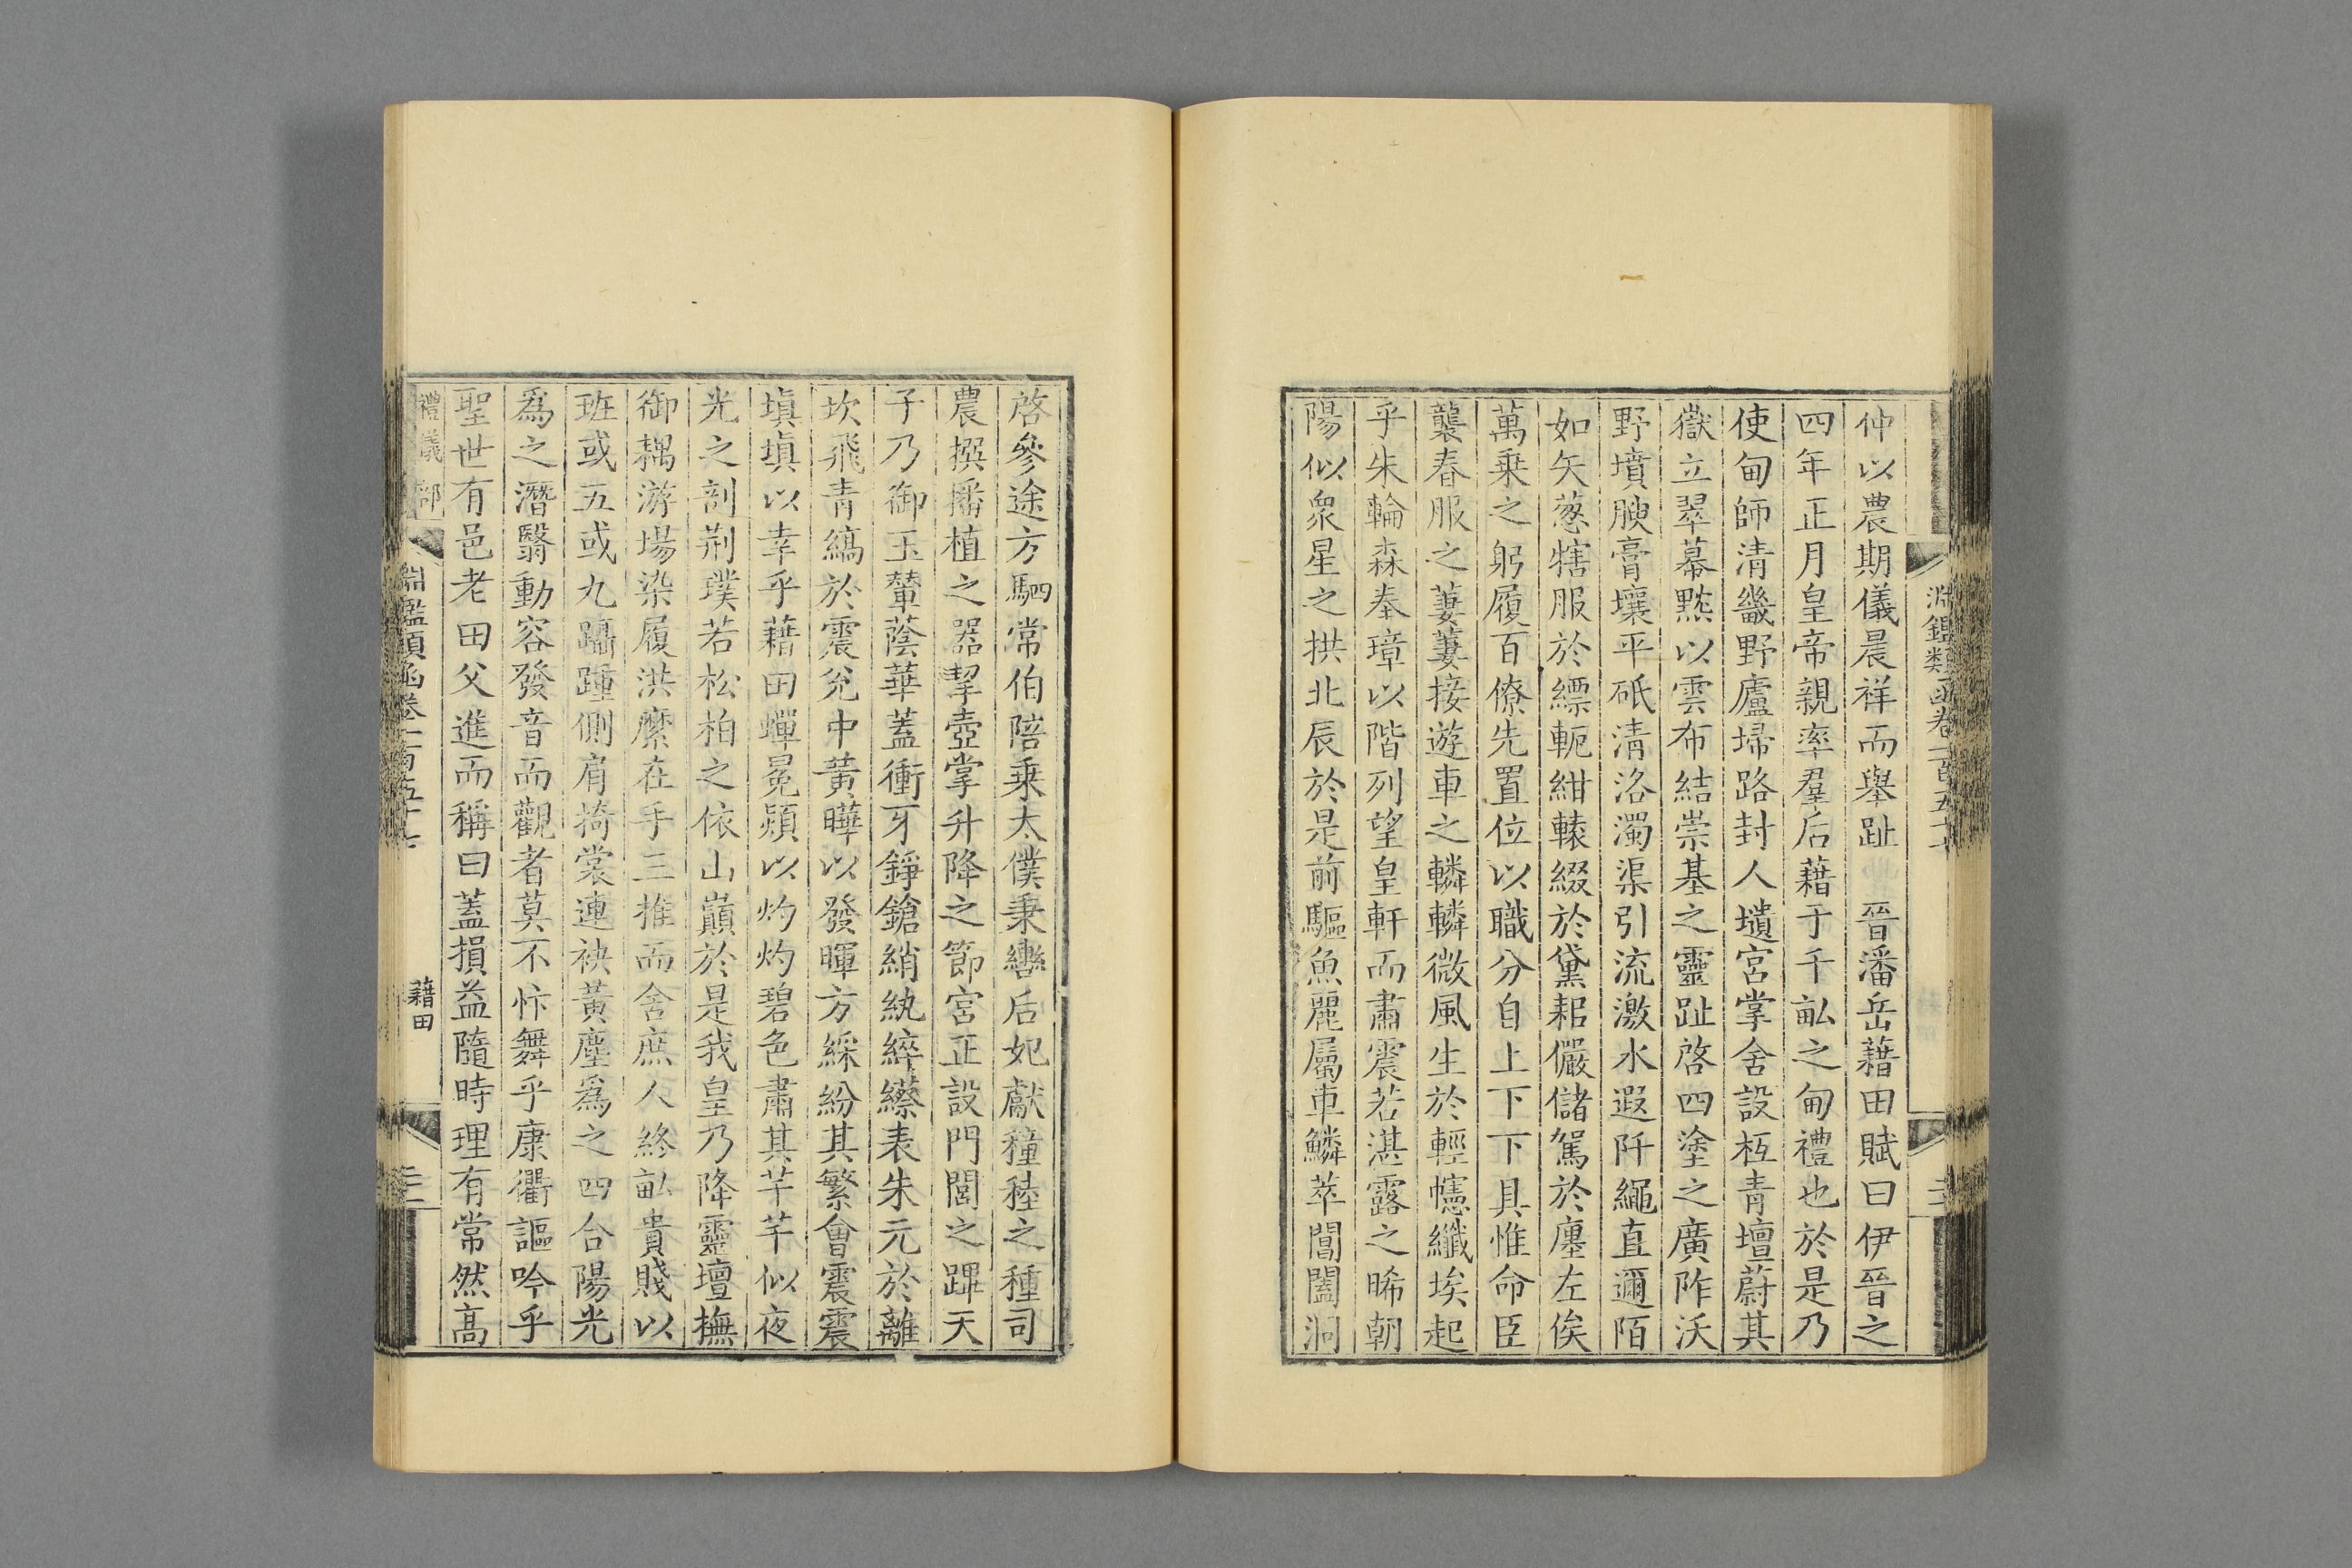 淵鑑類函卷一百五十七
仲以農期儀晨祥而舉趾 晉潘岳藉田賦曰伊晉之
四年正月皇帝親率羣后藉于千畝之甸禮也於是乃
使甸師清畿野廬埽路封人壝宮掌舍設枑青壇蔚其
嶽立翠幕黕以雲布結崇基之靈趾啓四塗之廣阼沃
野墳腴膏壤平砥清洛濁渠引流激水遐阡繩直邇陌
如矢葱犗服於縹軛紺轅綴於黛耜儼儲駕於廛左俟
萬乗之躬履百僚先置位以職分自上下下具惟命臣
襲春服之萋萋接遊車之轔轔微風生於輕幰纖埃起
乎朱輪森奉璋以階列望皇軒而肅震若湛露之晞朝
陽似衆星之拱北辰於是前驅魚麗屬車鱗萃閶闔洞
啓參途方駟常伯陪乗太僕秉轡后妃獻穜稑之種司
農撰播植之器挈壺掌升降之節宮正設門閭之蹕天
子乃御玉輦蔭華蓋衝牙錚鎗綃紈綷䌨表朱元於離
坎飛青縞於震兊中黃曄以發暉方綵紛其繁會震震
塡塡以幸乎藉田蟬冕熲以灼灼碧色肅其芊芊似夜
光之剖荆璞若松柏之依山巔於是我皇乃降靈壇撫
御耦游場染屨洪縻在手三推而舍庶人終畝貴賤以
班或五或九躡踵側肩掎裳連袂黃塵爲之四合陽光
爲之潛翳動容發音而觀者莫不忭舞乎康衢謳吟乎
聖世有邑老田父進而稱曰蓋損益隨時理有常然高
禮儀部 淵鑑類函卷一百五十七 藉田